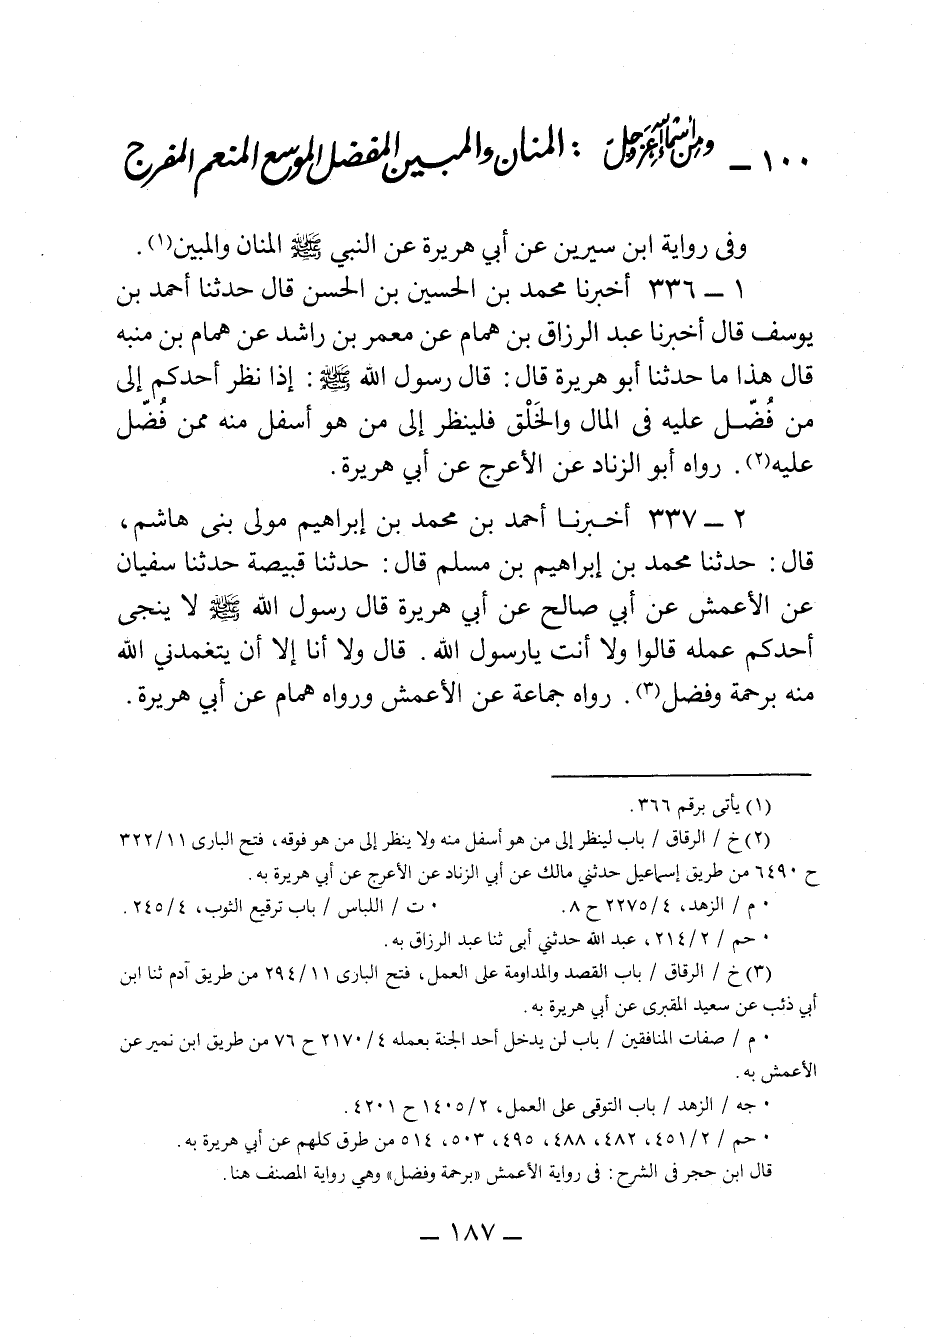 ١٠٠ ـ ومن أسماء الله عز وجل : المنان والمبين المفضل الموسع المنعم المفرج
وفى رواية ابن سيرين عن أبي هريرة عن النبي ﷺ المنان والمبين(١).
١ ـ ٣٣٦ أخبرنا محمد بن الحسين بن الحسن قال حدثنا أحمد بن
يوسف قال أخبرنا عبد الرزاق بن همام عن معمر بن راشد عن همام بن منبه
قال هذا ما حدثنا أبو هريرة قال: قال رسول الله ﷺ: إذا نظر أحدكم إلى
من فُضّل عليه فى المال والخَلْق فلينظر إلى من هو أسفل منه ممن فُضّل
عليه(٢). رواه أبو الزناد عن الأعرج عن أبي هريرة.
٢ ـ ٣٣٧ أخبرنا أحمد بن محمد بن إبراهيم مولى بنى هاشم،
قال: حدثنا محمد بن إبراهيم بن مسلم قال: حدثنا قبيصة حدثنا سفيان
عن الأعمش عن أبي صالح عن أبي هريرة قال رسول الله ﷺ لا ينجى
أحدكم عمله قالوا ولا أنت يارسول الله. قال ولا أنا إلا أن يتغمدني الله
منه برحمة وفضل(٣). رواه جماعة عن الأعمش ورواه همام عن أبي هريرة.
(١) يأتى برقم ٣٦٦.
(٢) خ / الرقاق / باب لينظر إلى من هو أسفل منه ولا ينظر إلى من هو فوقه، فتح البارى ٣٢٢/١١
ح ٦٤٩٠ من طريق إسماعيل حدثني مالك عن أبي الزناد عن الأعرج عن أبي هريرة به.
• م / الزهد، ٢٢٧٥/٤ ح ٨. • ت / اللباس / باب ترقيع الثوب، ٢٤٥/٤.
• حم / ٢١٤/٢، عبد الله حدثني أبى ثنا عبد الرزاق به.
(٣) خ / الرقاق / باب القصد والمداومة على العمل، فتح البارى ٢٩٤/١١ من طريق آدم ثنا ابن
أبي ذئب عن سعيد المقبرى عن أبي هريرة به.
• م / صفات المنافقين / باب لن يدخل أحد الجنة بعمله ٢١٧٠/٤ ح ٧٦ من طريق ابن نمير عن
الأعمش به.
• جه / الزهد / باب التوقى على العمل، ١٤٠٥/٢ ح ٤٢٠١.
• حم / ٤٥١/٢، ٤٨٢، ٤٨٨، ٤٩٥، ٥٠٣، ٥١٤ من طرق كلهم عن أبي هريرة به.
قال ابن حجر فى الشرح: فى رواية الأعمش «برحمة وفضل» وهي رواية المصنف هنا.
ـ ١٨٧ ـ